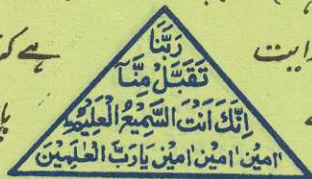 رَبَّنَا
تَقَبَّلْ مِنَّا
اِنَّكَ اَنْتَ السَّمِيْعُ الْعَلِيْمُ
اٰمِيْن اٰمِيْن اٰمِيْن يَارَبَّ الْعٰلَمِيْنَ
ہے